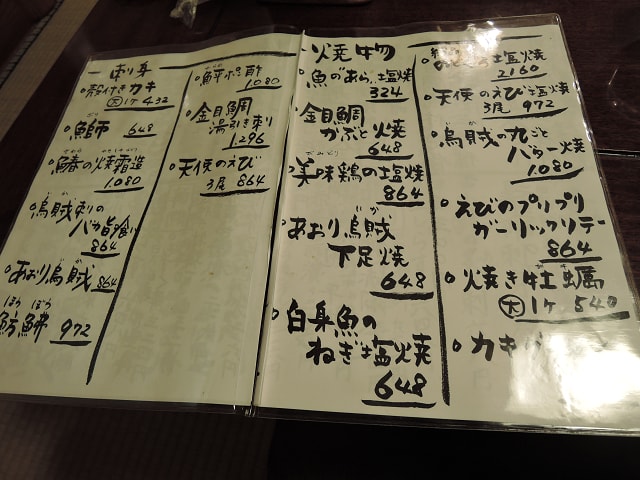 刺し身
・殻付きカキ
大1ケ 432
・鰤 648
・鰆の火焼霜造
1.080
・烏賊刺の
バカ旨喰い
864
・あおり烏賊 864
ほう ぼう
魴鮄 972
・鮃ポン酢
1.080
・金目鯛
湯引き刺
1.296
・天使のえび
3尾 864
焼物
・魚のあら塩焼
324
・金目鯛
かぶと焼
648
・美味鶏の塩焼
864
・あおり烏賊
下足焼
648
・白身魚の
ねぎ塩焼
648
塩焼
2160
・天使のえび塩焼
3尾 972
・烏賊の丸ごと
バター焼
1.080
・えびのプリプリ
ガーリックソテー
864
・焼き牡蠣
大1ケ 540
・カキ